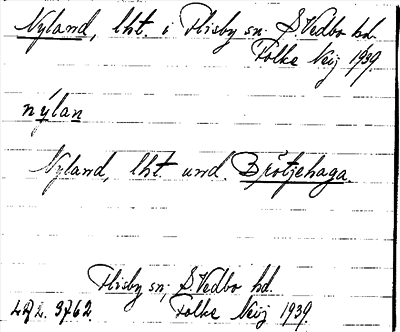 Nyland, lht. i Flisby sn. S. Vedbo hd.
Folke Neij 1939.
nýlan
Nyland, lht und. Brötjehaga.
Flisby sn; S. Vedbo hd.
Folke Neij 1939.